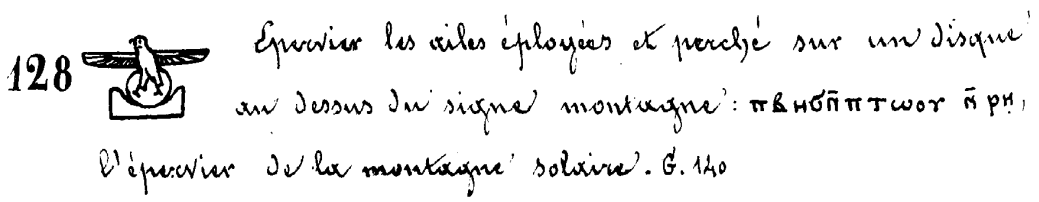 128 Epervier les ailes éployées et perché sur un disque
au dessus du signe montagne : ⲡⲃⲏϭⲛ̄ⲡⲧⲱⲟⲩ ⲛ̄ ⲣⲏ,
l'épervier de la montagne solaire. G. 140